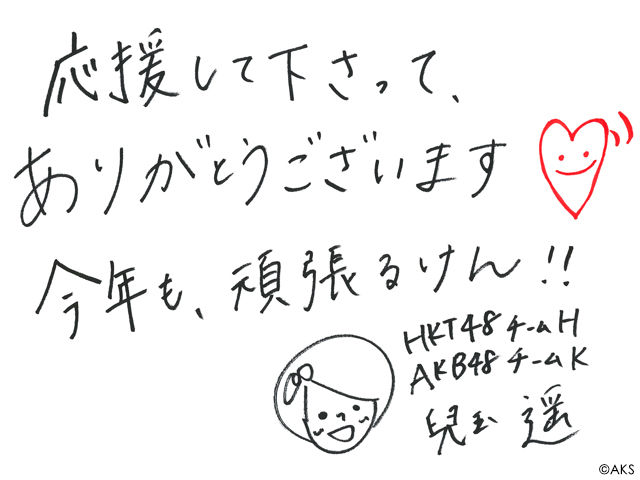 応援して下さって、
ありがとうございます
今年も、頑張るけん!!
HKT48 チームH
AKB48 チームK
兒玉 遥
©AKS